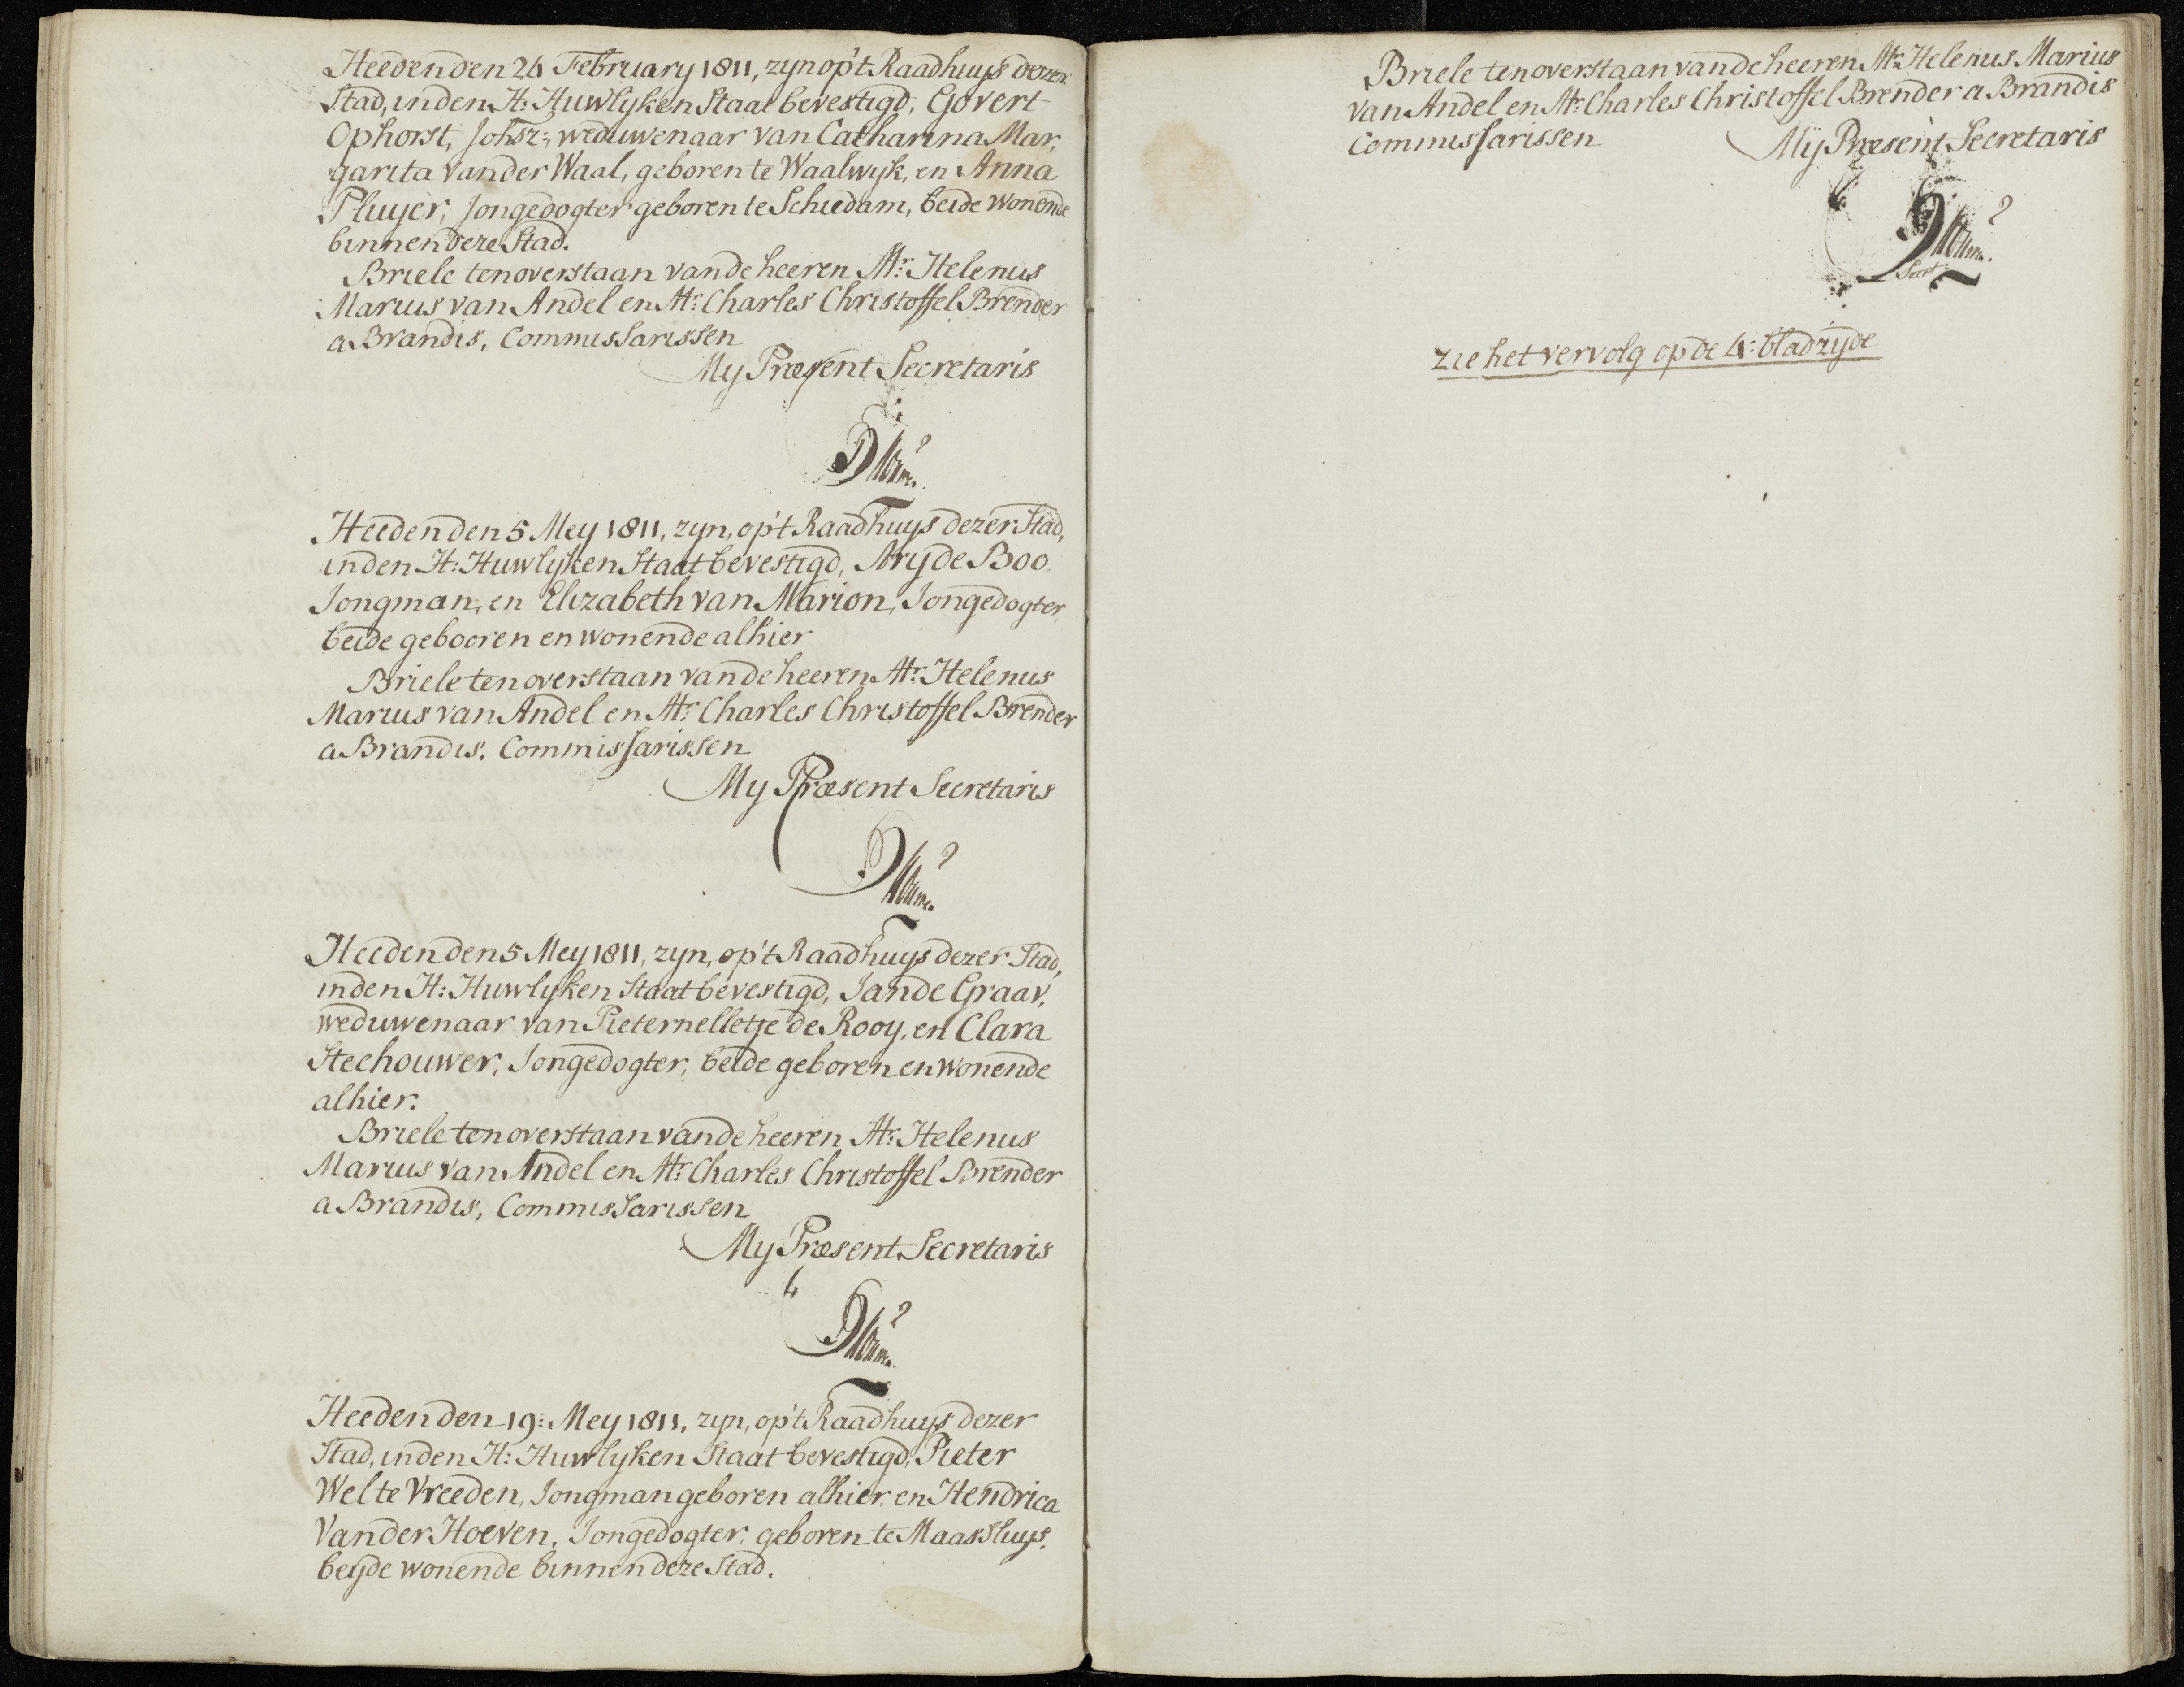 Heeden den 24 February 1811, zyn op't Raadhuys dezer
Stad, in den H: Huwlyken Staat bevestigd, Govert
Ophorst, Johsz:, weduwenaar van Catharina Mar,
garita vander Waal, geboren te Waalwyk, en Anna
Pluyer, Jongedogter geboren te Schiedam, beide wonende
binnen deze Stad.
Briele ten overstaan vande heeren Mr: Helenus
Marius van Andel en Mr: Charles Christoffel Brender
a Brandis, Commissarissen
My Præsent Secretaris
Heeden den 5 Mey 1811, zyn, op't Raadhuys dezer Stad,
in den H: Huwlyken Staat bevestigd, Ary de Boo,
Jongman, en Elizabeth van Marion, Jongedogter,
beide gebooren en wonende alhier
Briele ten overstaan vande heeren Mr: Helenus
Marius van Andel en Mr: Charles Christoffel Brender
a Brandis, Commissarissen
My Præsent Secretaris
Heeden den 5 Mey 1811, zyn, op't Raadhuys dezer Stad,
in den H: Huwlyken Staat bevestigd, Jan de Graav,
weduwenaar van Pieternelletje de Rooy, en Clara
Steehouwer, Jongedogter, beide geboren en wonende
alhier.
Briele ten overstaan vande heeren Mr: Helenus
Marius van Andel en Mr: Charles Christoffel Brender
a Brandis, Commissarissen
My Præsent Secretaris
Heeden den 19: Mey 1811, zyn, op't Raadhuys dezer
Stad, in den H: Huwlyken Staat bevestigd, Pieter
Wel te Vreeden, Jongman geboren alhier, en Hendrica
Vander Hoeven, Jongedogter, geboren te Maassluys,
beyde wonende binnen deze Stad.
Briele ten overstaan vande heeren Mr: Helenus Marius
van Andel en Mr: Charles Christoffel Brender a Brandis
Commissarissen My Præsent Secretaris
Secrt
zie het vervolg op de 4e: bladzyde